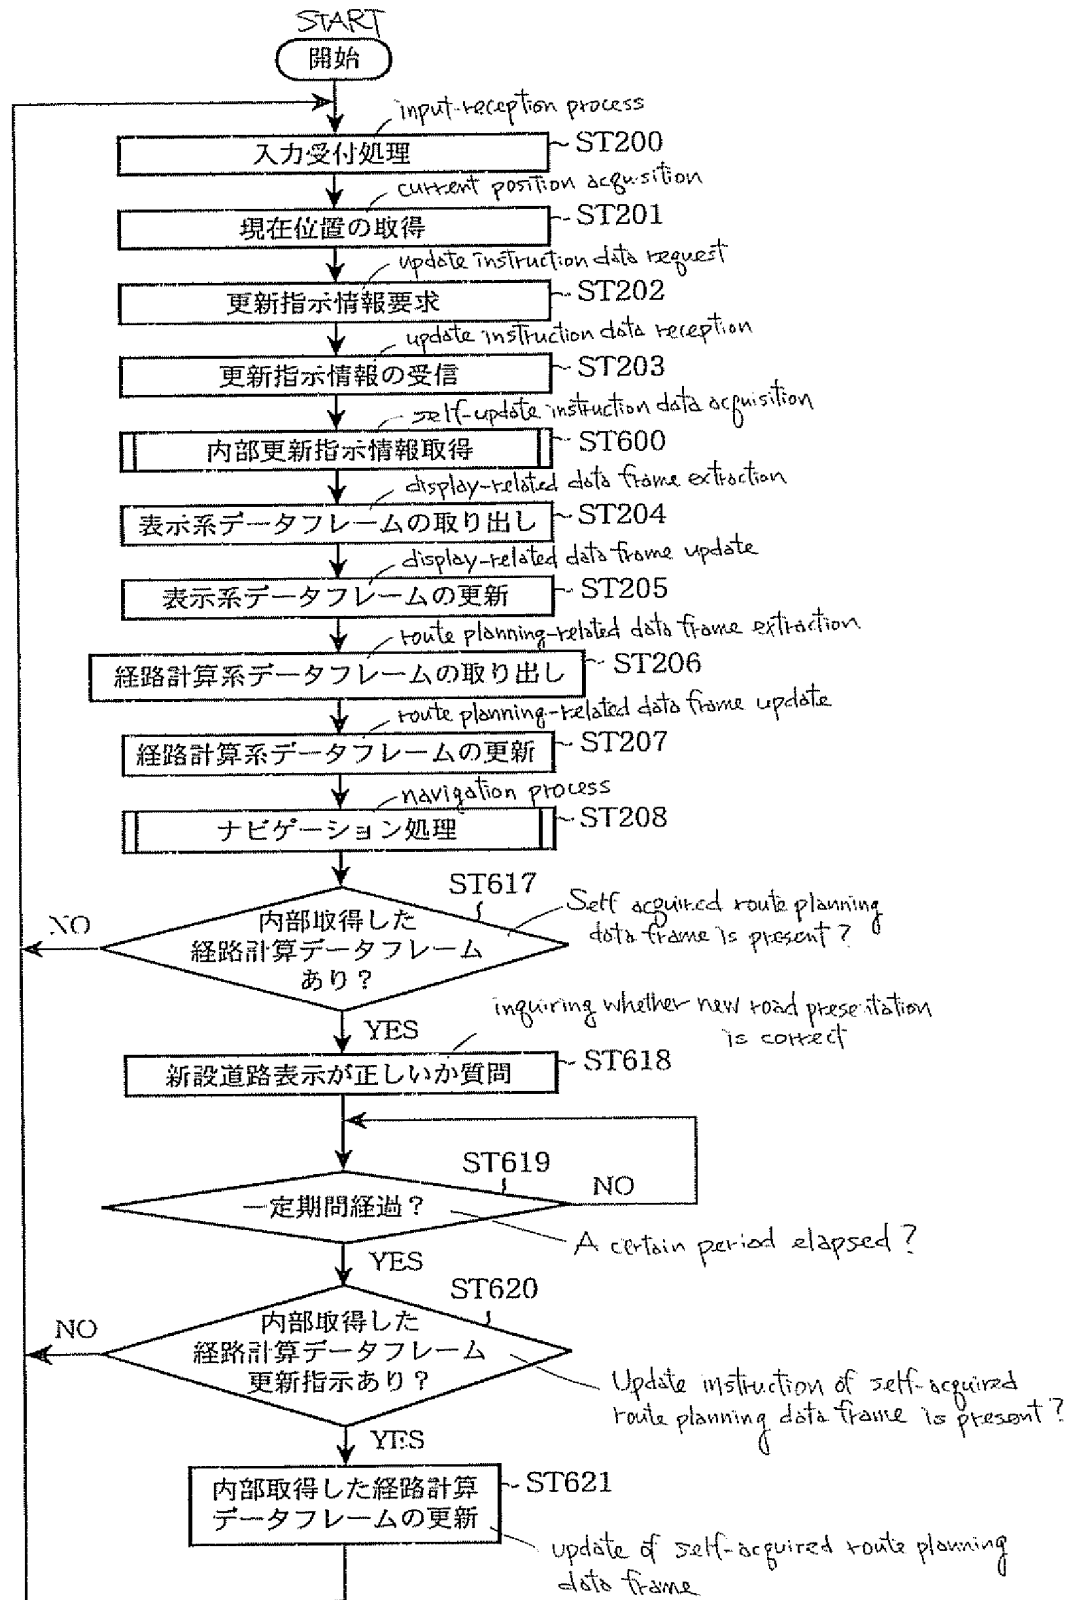 START
開始
input-reception process
入力受付処理
ST200
current position acquisition
現在位置の取得
ST201
update instruction data request
更新指示情報要求
ST202
update instruction data reception
更新指示情報の受信
ST203
self-update instruction data acquisition
内部更新指示情報取得
ST600
display-related data frame extraction
表示系データフレームの取り出し
ST204
display-related data frame update
表示系データフレームの更新
ST205
route planning-related data frame extraction
経路計算系データフレームの取り出し
ST206
route planning-related data frame update
経路計算系データフレームの更新
ST207
navigation process
ナビゲーション処理
ST208
ST617
内部取得した
経路計算データフレーム
あり？
NO
Self acquired route planning
data frame is present?
YES
inquiring whether new road presentation
is correct
新設道路表示が正しいか質問
ST618
ST619
一定期間経過？
NO
A certain period elapsed?
YES
ST620
内部取得した
経路計算データフレーム
更新指示あり？
NO
Update instruction of self-acquired
route planning data frame is present?
YES
内部取得した経路計算
データフレームの更新
ST621
update of self-acquired route planning
data frame